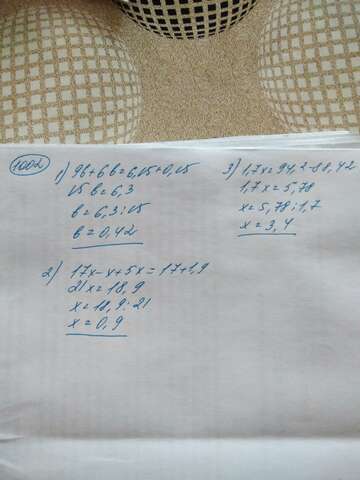 1002
1) 9b+6b=6,15+0,15
15b=6,3
b=6,3:15
b=0,42
2) 17x-x+5x=17+1,9
21x=18,9
x=18,9:21
x=0,9
3) 1,7x=94,2-88,42
1,7x=5,78
x=5,78:1,7
x=3,4